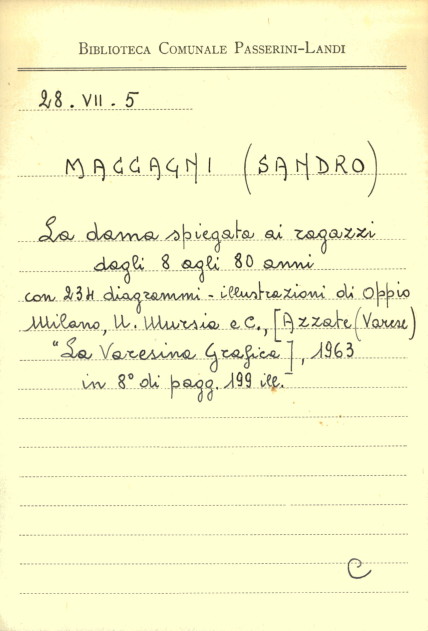 BIBLIOTECA COMUNALE PASSERINI-LANDI
28.VII.5
MACCAGNI (SANDRO)
La dama spiegata ai ragazzi
dagli 8 agli 80 anni
con 234 diagrammi - illustrazioni di Oppio
Milano, U. Mursia e C., [Azzate (Varese)
"La Varesina Grafica], 1963
in 8° di pagg. 199 ill.
C